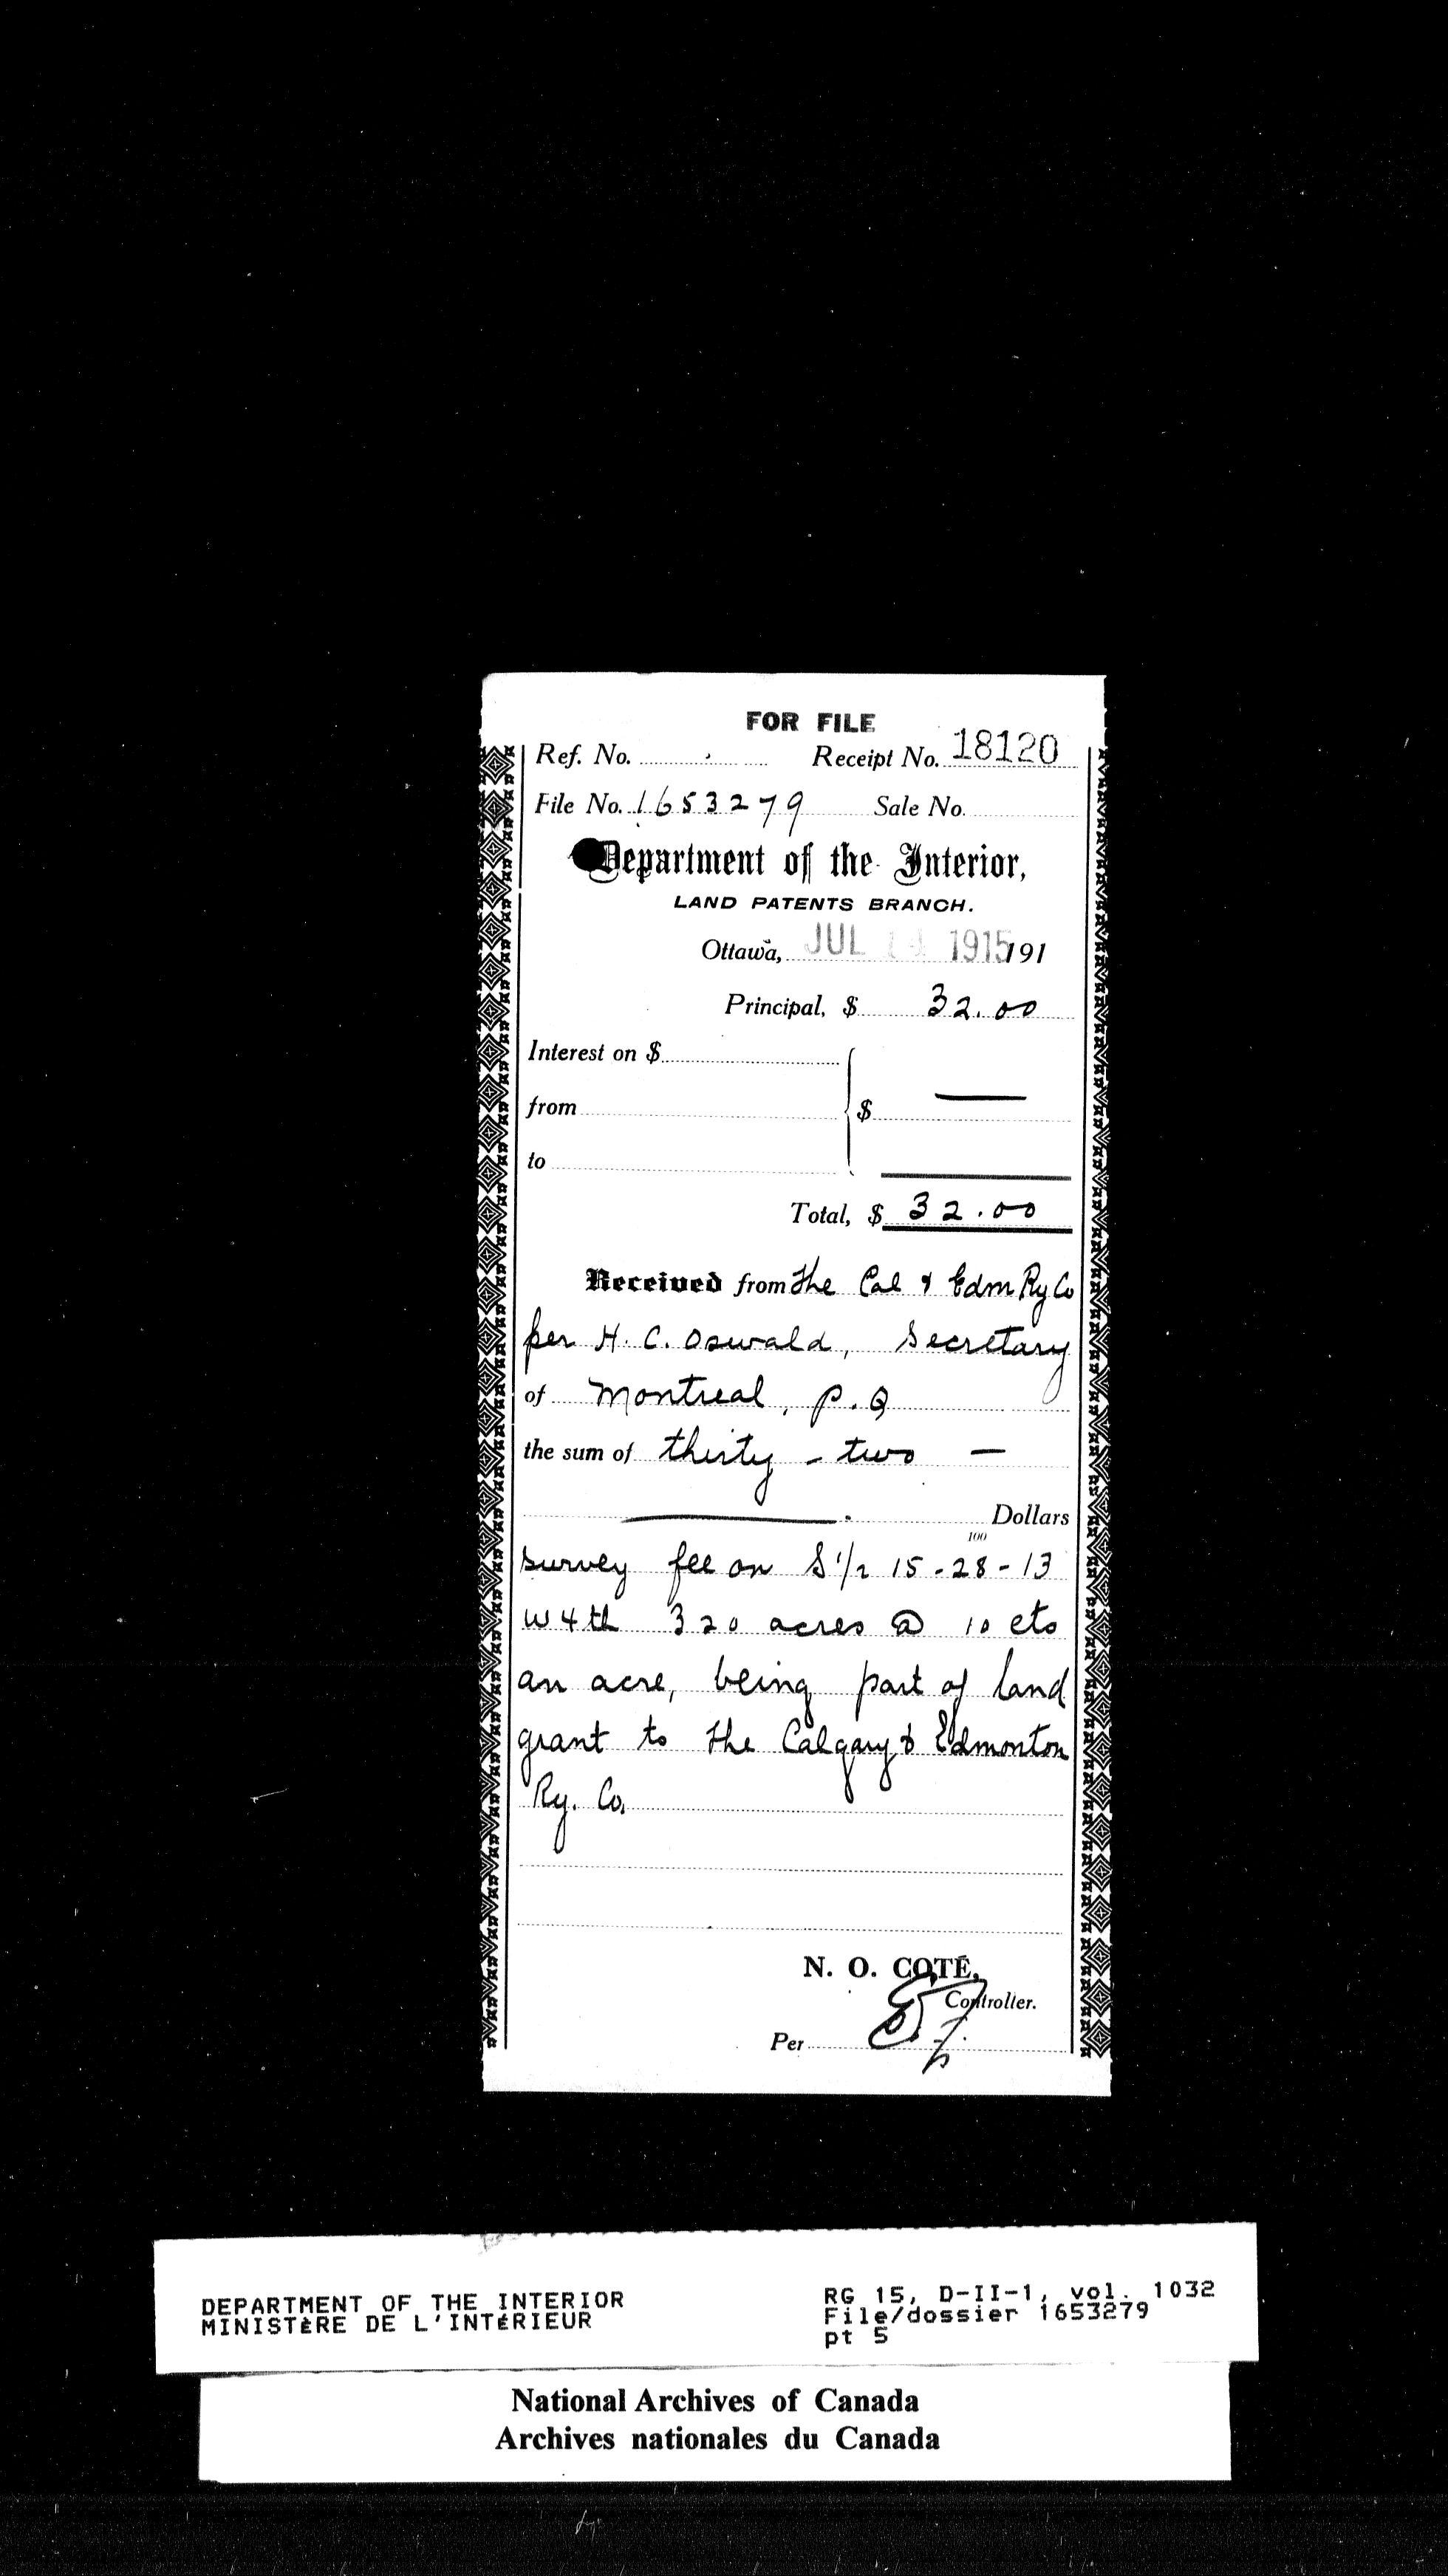 FOR FILE
Ref. No. Receipt No. 18120
File No. 1653279 Sale No.
Department of the Interior,
LAND PATENTS BRANCH.
Ottawa, JUL 14 1915 191
Principal, $ 32.00
Interest on $
from $ —
to
Total, $ 32.00
Received from The Cal & Edm Ry Co
per H. C. Oswald, Secretary
of Montreal, P.Q
the sum of thirty - two —
Dollars
100
survey fee on S 1/2 15-28-13
W 4th 320 acres @ 10 cts
an acre, being part of land
grant to the Calgary & Edmonton
Ry. Co.
N. O. COTÉ,
Controller.
Per
DEPARTMENT OF THE INTERIOR
MINISTÈRE DE L'INTÉRIEUR
RG 15, D-II-1, vol. 1032
File/dossier 1653279
pt 5
National Archives of Canada
Archives nationales du Canada